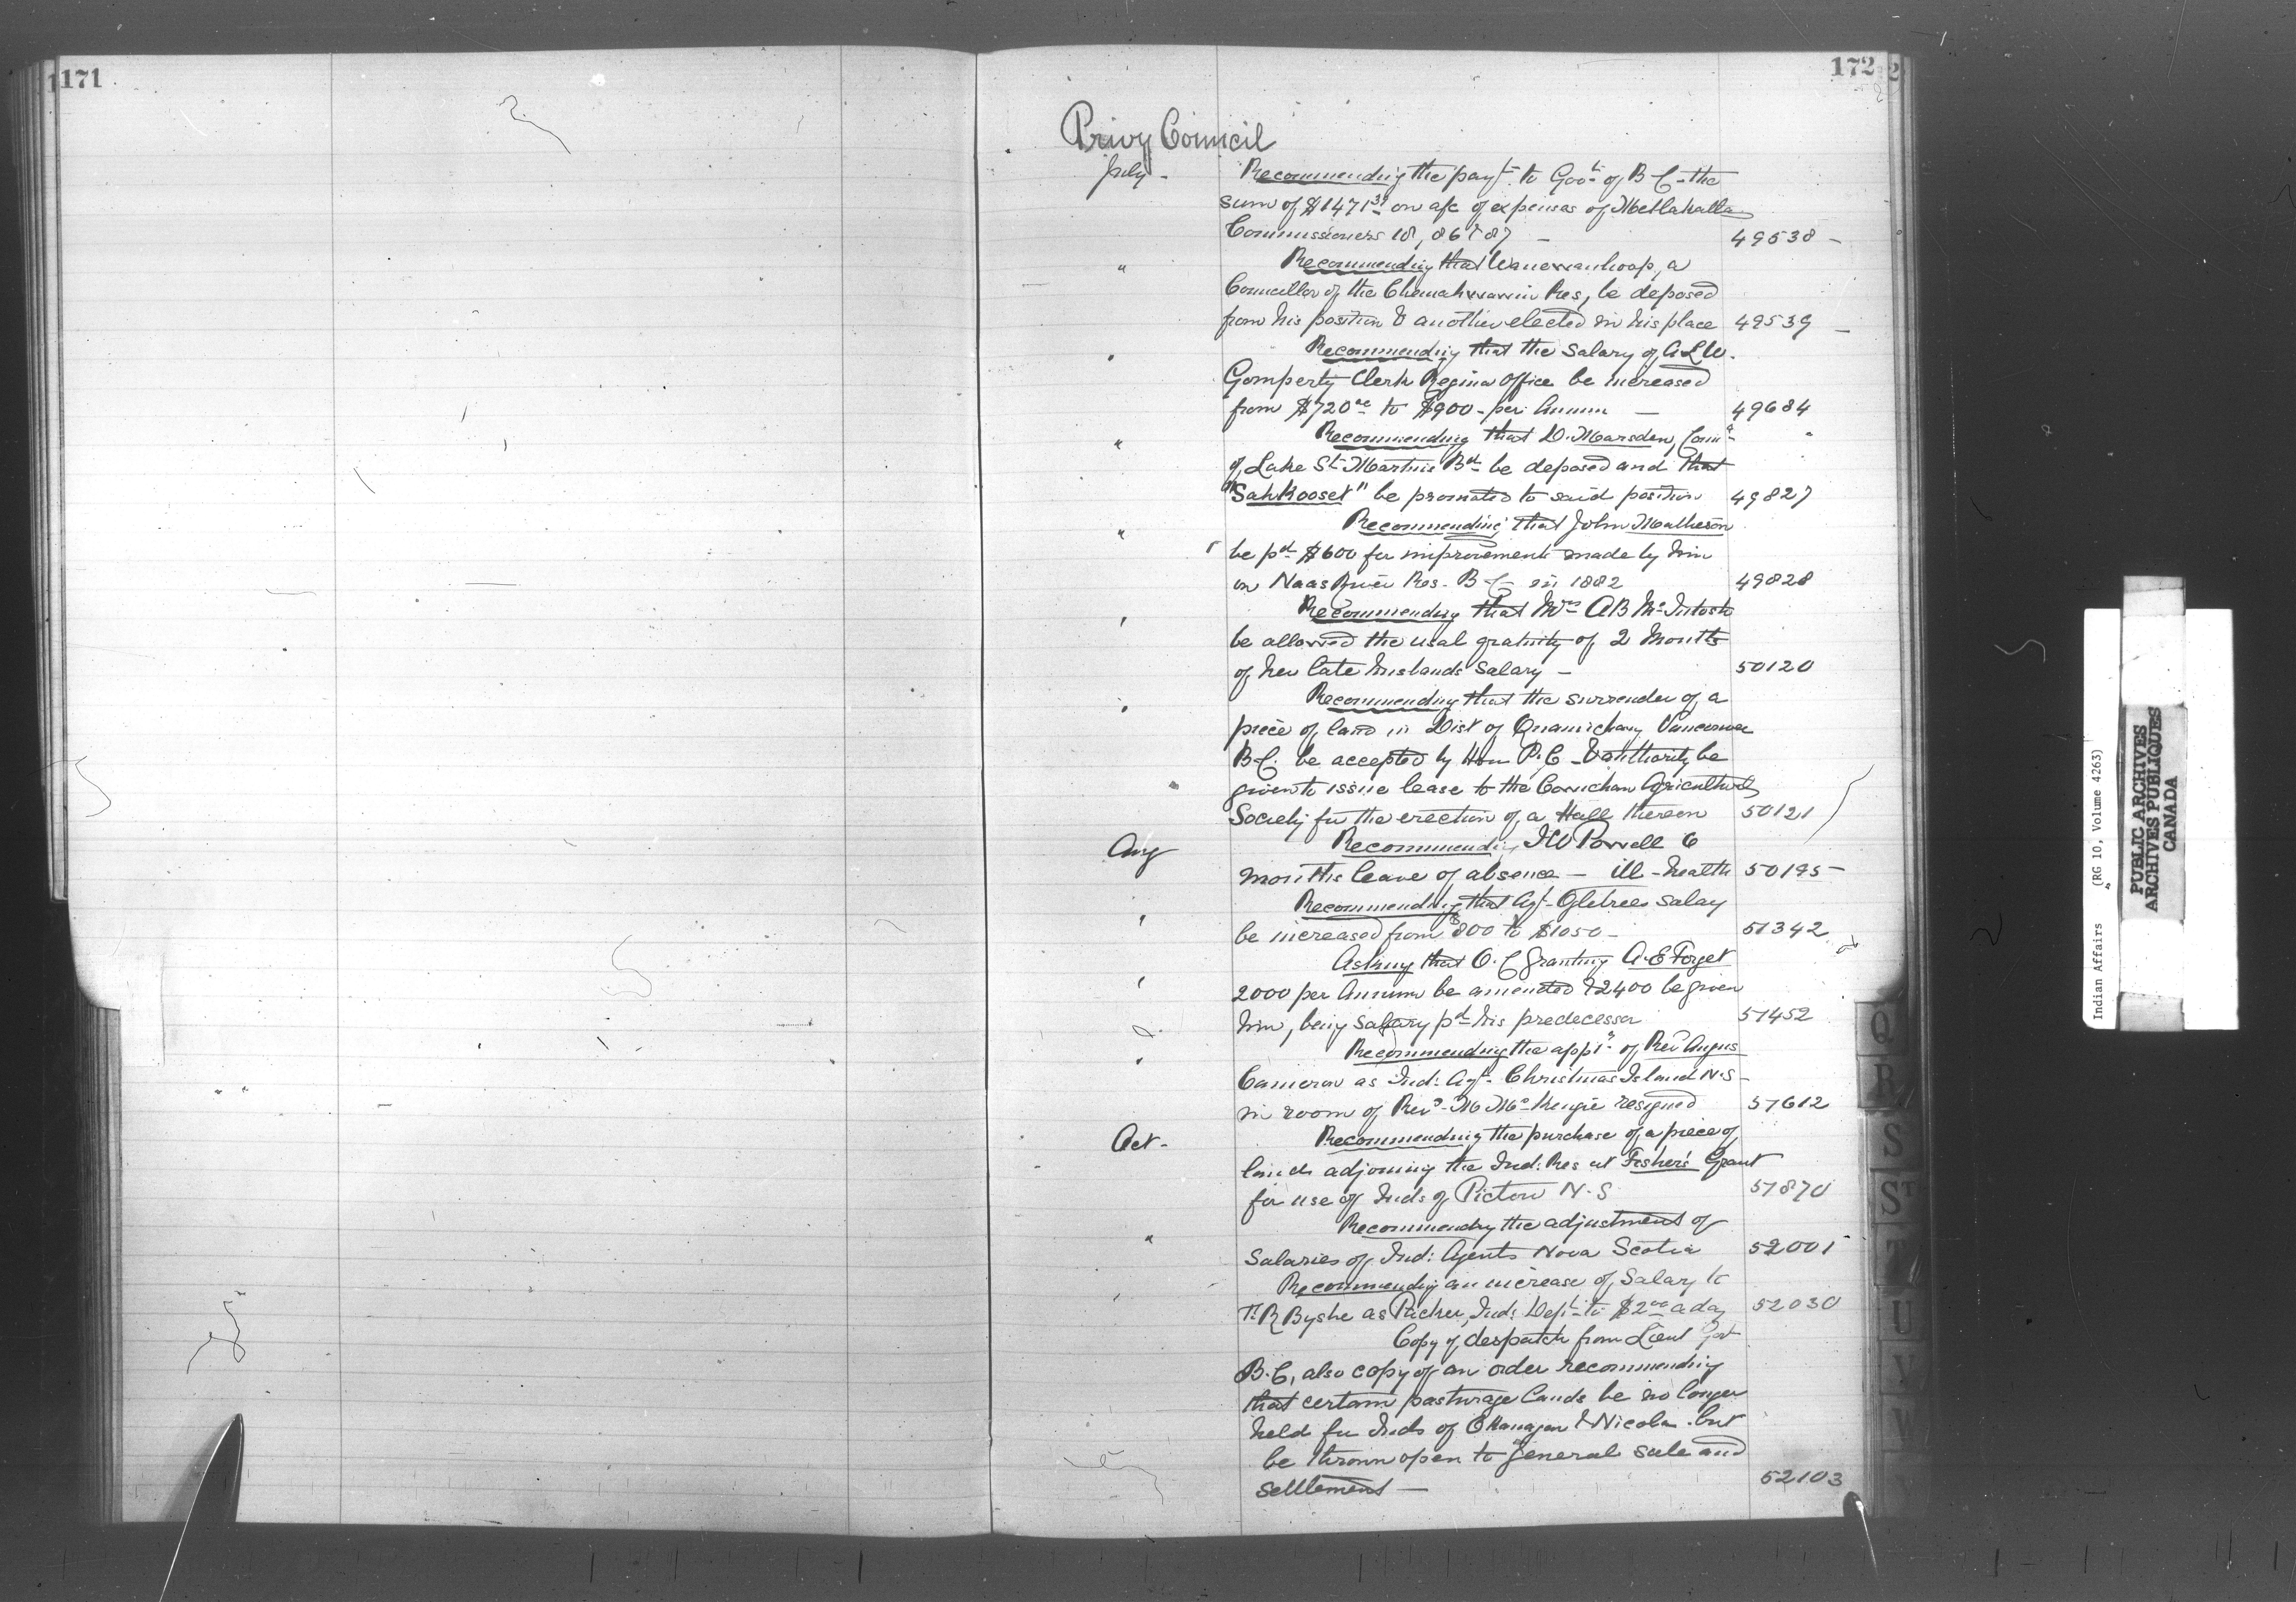 171
172
Privy Council
July - Recommending the payt. to Govt. of B C - the
sum of $1471 on a/c of expenses of Metlakatla
Commissioners 18, 86 & 87 - 49538 -
" Recommending that a
Councillor of the Chemahwawin Res, be deposed
from his position & another elected in his place 49539 -
" Recommending that the salary of A L W.
Gompertz Clerk Regina Office be increased
from $720 to $900 - per Annum - 49684
" Recommending that D. Marsden,
of Lake St. Martins Bd. be deposed and that
"Sahkooset" be promoted to said position 49827
" Recommending that John Matheson
be pd. $600 for improvements made by him
on Naas River Res - B C - in 1882 49828
" Recommending that Mrs A B McIntosh
be allowed the usal gratuity of 2 Months
of her late husbands Salary - 50120
" Recommending that the surrender of a
piece of land in Dist of Quamichan Vancouver
B C. be accepted by Hon P. C - & authority be
given to issue lease to the Cowichan Agricultural
Society for the erection of a Hall thereon 50121
Aug Recommending I W Powell 6
months leave of absence - ill-health 50195 -
" Recommending that Agt. Ogletrees Salay
be increased from $800 to $1050 - 51342
" Asking that O. C granting A. E Forget
2000 per Annum be amended & 2400 be given
him, being Salary pd. his predecessor 51452
" Recommending the appt. of Rev Angus
Cameron as Ind: Agt. Christmas Island N.S -
in room of Revd. M McKenzie resigned 51612
Oct - Recommending the purchase of a piece of
land adjoining the Ind: Res at Fisher's Grant
for use of Inds of Pictou N. S 51870
" Recommending the adjustment of
Salaries of Ind: Agents Nova Scotia 52001
" Recommending an increase of Salary to
R Byshe as Packer, Ind: Dept. to $2.00 a day 52030
Copy of despatch from Lieut Gov
B. C, also copy of an order recommending
that certain pasturage lands be no longer
held for Inds of Okanagan & Nicola but
be thrown open to general sale and
Settlement - 52103
Q
R
S
ST
T
U
V
W
Indian Affairs (RG 10, Volume 4263)
PUBLIC ARCHIVES
ARCHIVES PUBLIQUES
CANADA